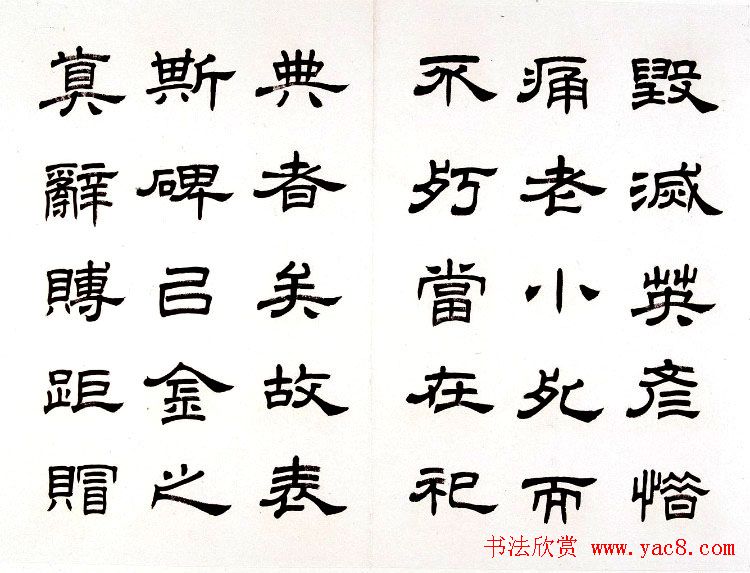 毀滅英彥憯
痛老小死而
不朽當在祀
典者矣故表
斯碑己金之
真辭賻距賵
书法欣赏 www.yac8.com